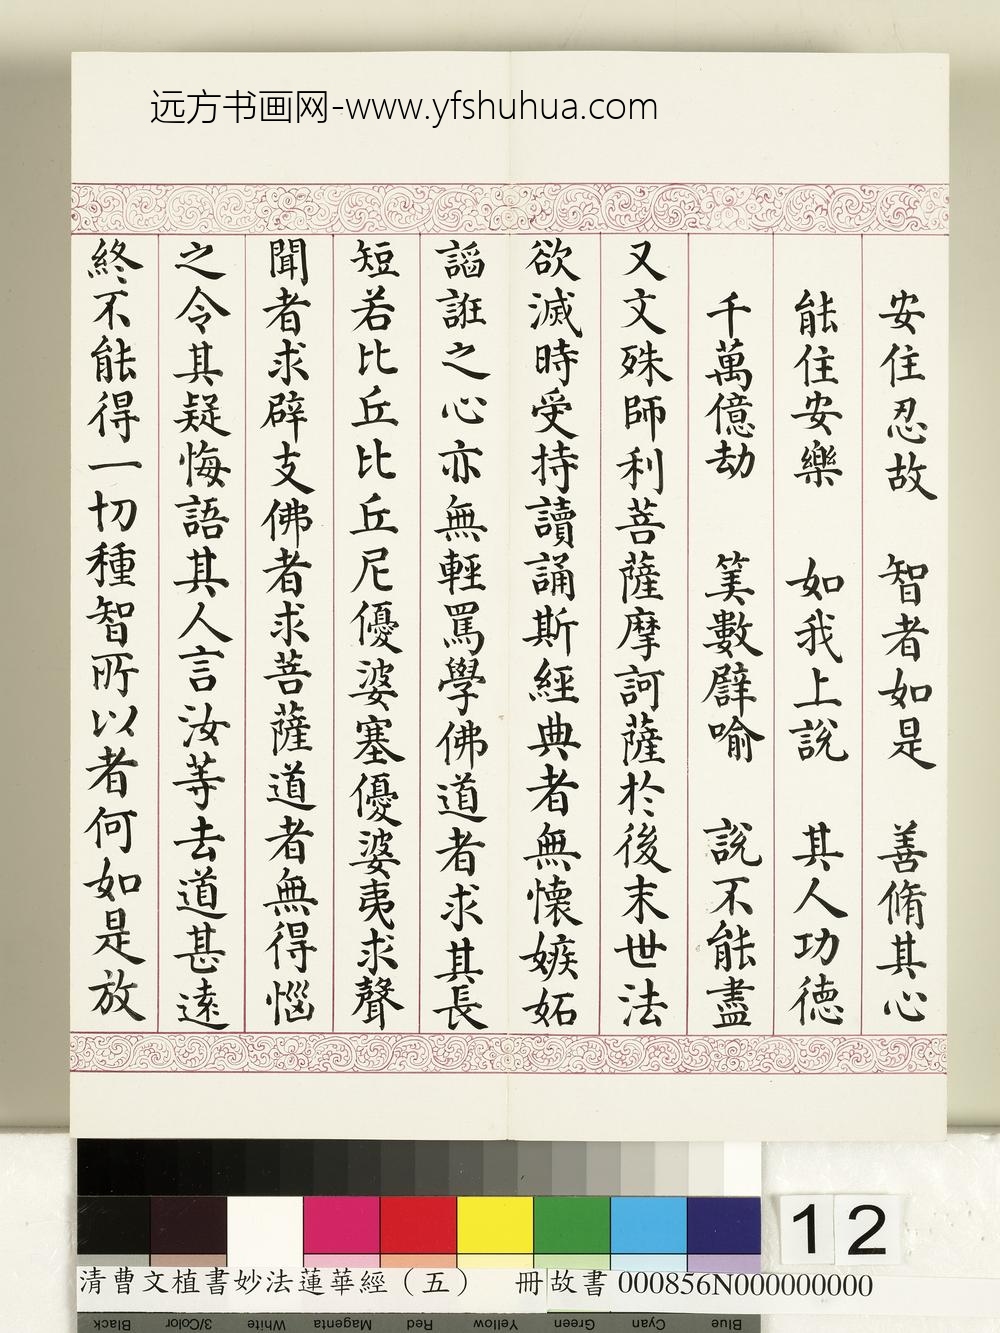 远方书画网-www.yfshuhua.com
安住忍故 智者如是 善脩其心
能住安樂 如我上說 其人功德
千萬億劫 筭數譬喻 說不能盡
又文殊師利菩薩摩訶薩於後末世法
欲滅時受持讀誦斯經典者無懷嫉妬
謟誑之心亦無輕罵學佛道者求其長
短若比丘比丘尼優婆塞優婆夷求聲
聞者求辟支佛者求菩薩道者無得惱
之令其疑悔語其人言汝等去道甚遠
終不能得一切種智所以者何如是放
12
清曹文植書妙法蓮華經（五） 冊 故書000856N000000000
Black 3/Color White Magenta Red Yellow Green Cyan Blue